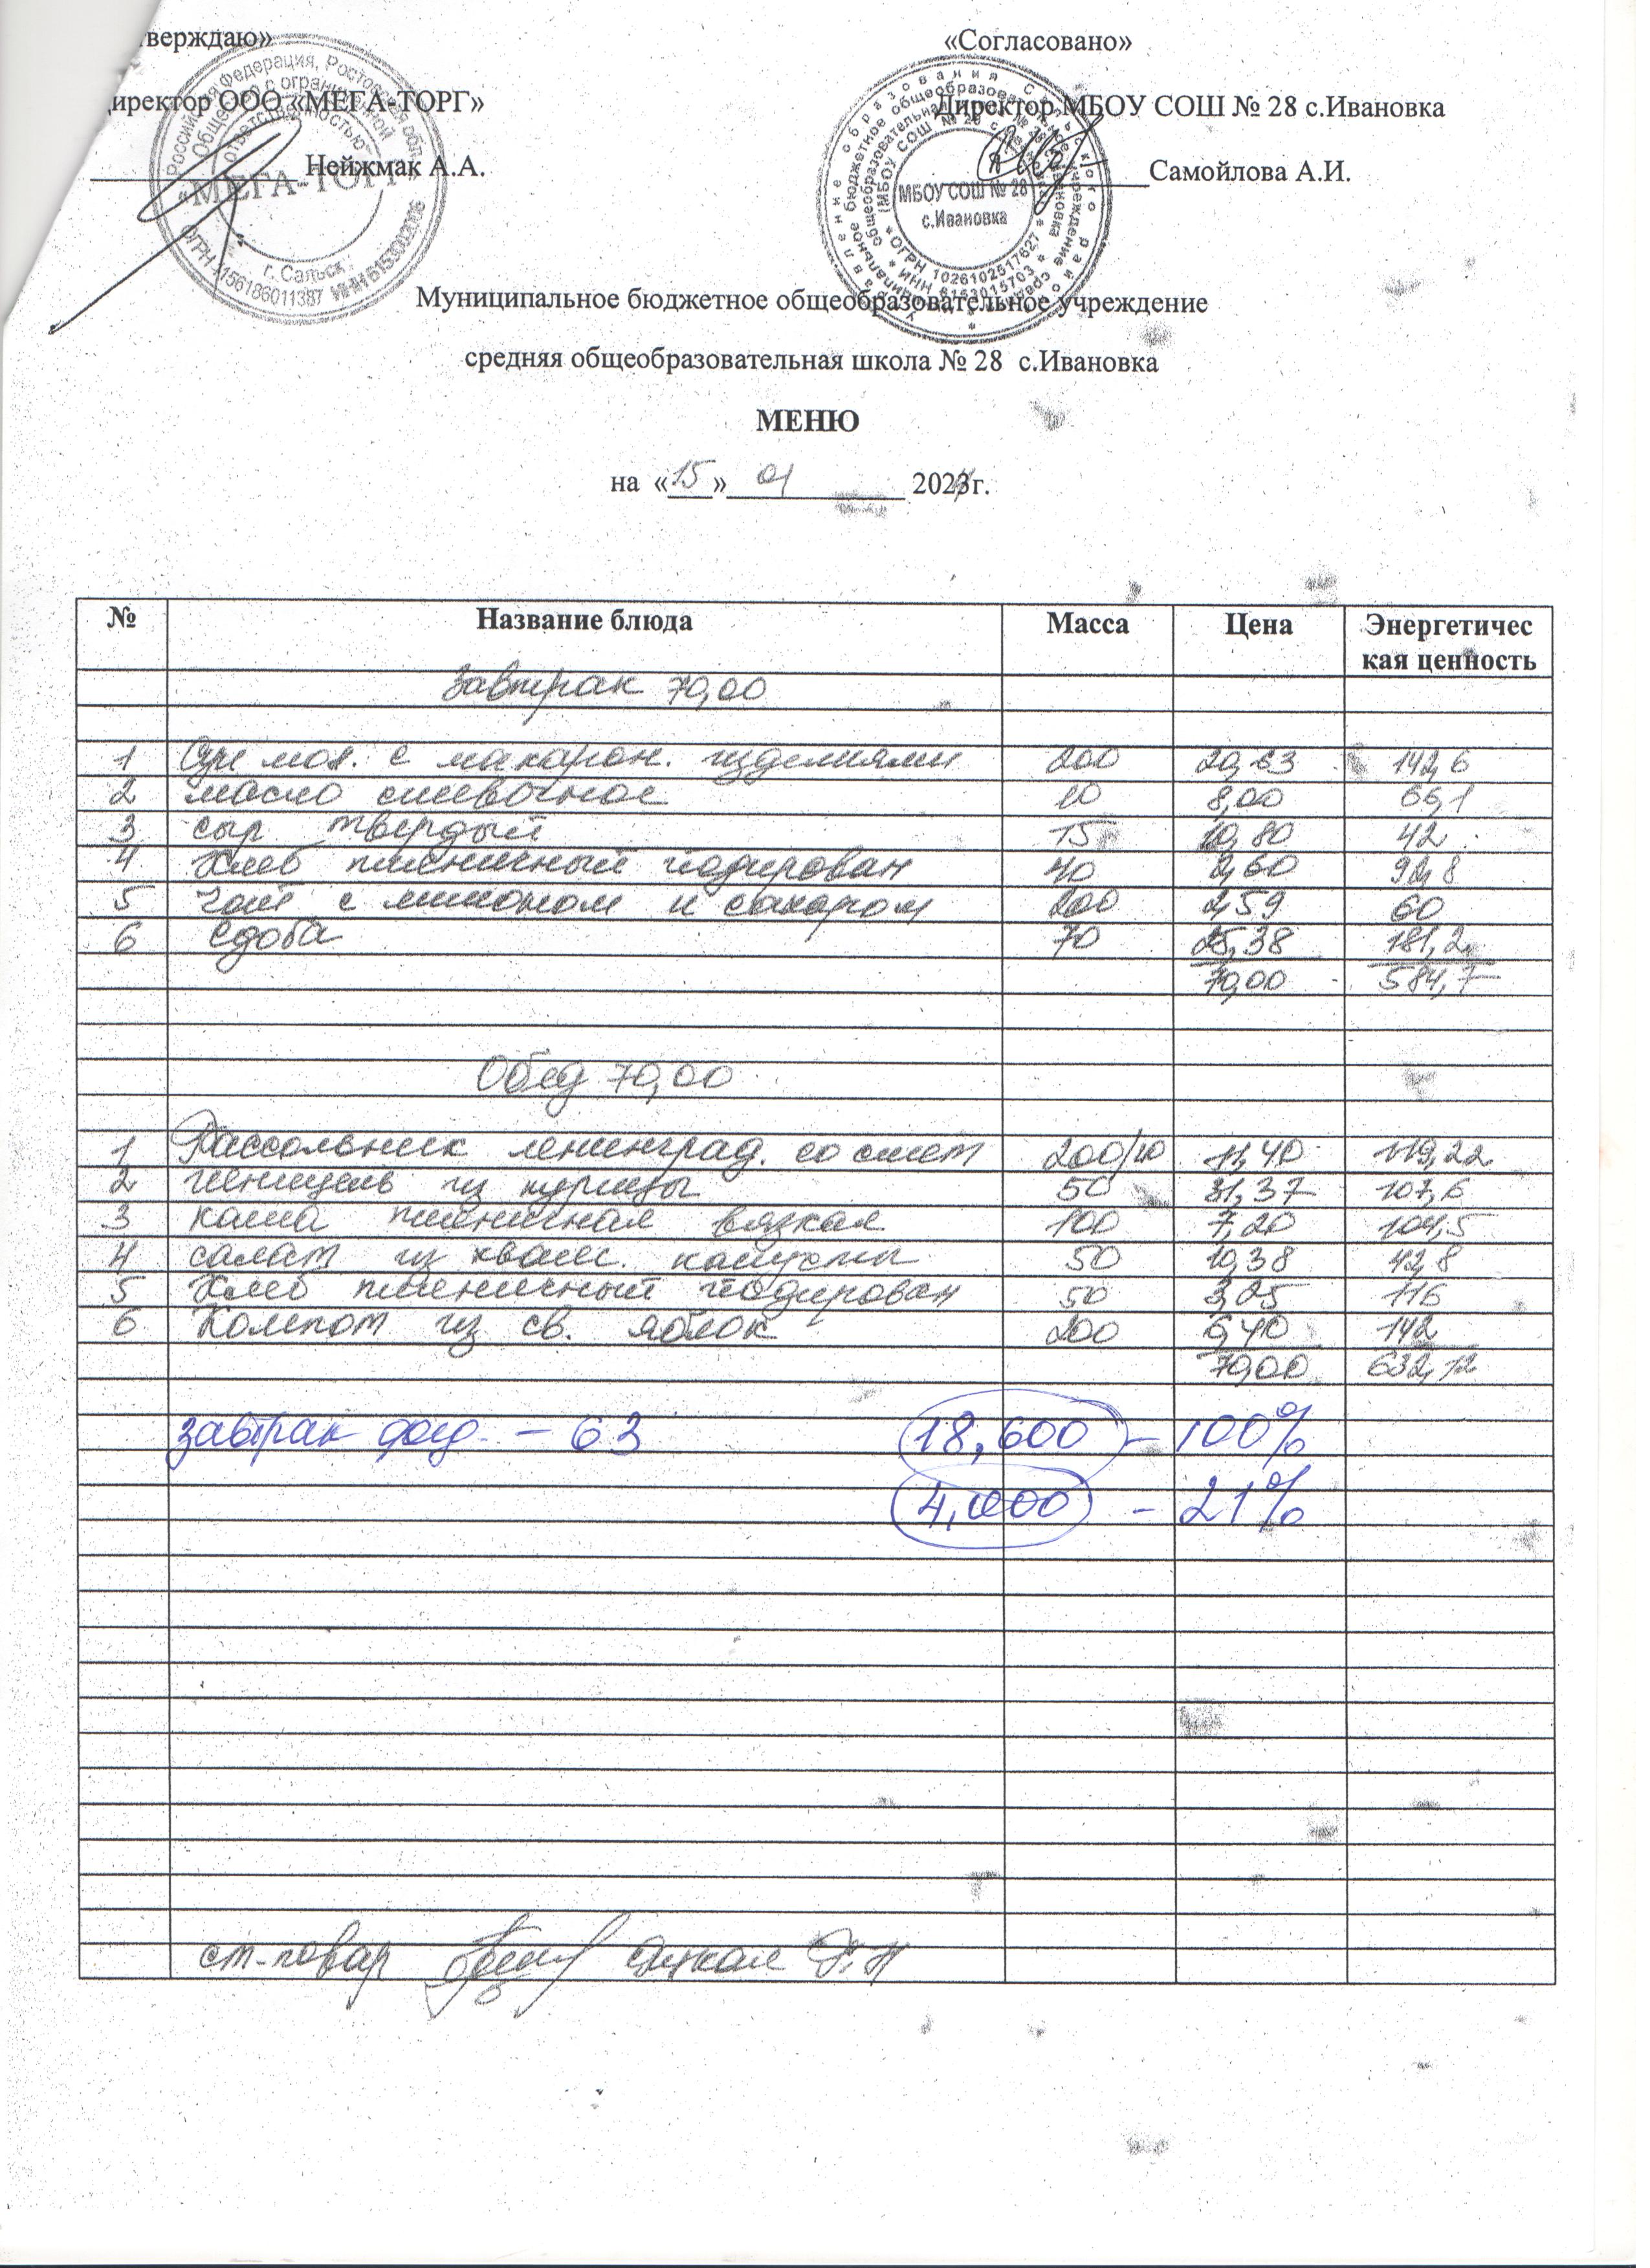 тверждаю»
«Согласовано»
директор ООО «МЕГА-ТОРГ»
Директор МБОУ СОШ № 28 с.Ивановка
Нейжмак А.А.
Самойлова А.И.
Российская Федерация, Ростовская обл.
Общество с ограниченной
ответственностью
«МЕГА-ТОРГ»
г. Сальск
ОГРН 1156186011387
МБОУ СОШ № 28
с.Ивановка
* ОГРН 1026102517627 *
* ИНН 6153015703 *
Муниципальное бюджетное общеобразовательное учреждение
средняя общеобразовательная школа № 28 с.Ивановка
МЕНЮ
на «15» 01 2024г.
№ Название блюда Масса Цена Энергетичес
кая ценность
Завтрак 70,00
1 Суп мол. с макарон. изделиями 200 20,63 142,6
2 масло сливочное 10 8,00 66,1
3 сыр твердый 15 10,80 42
4 Хлеб пшеничный йодирован 40 2,60 92,8
5 Чай с лимоном и сахаром 200 2,59 60
6 Сдоба 70 25,38 181,2
70,00 584,7
Обед 70,00
1 Рассольник ленинград. со смет 200/10 11,40 119,22
2 шницель из курицы 50 31,37 107,6
3 каша пшеничная вязкая 100 7,20 104,5
4 салат из кваш. капусты 50 10,38 42,8
5 Хлеб пшеничный йодирован 50 3,25 116
6 Компот из св. яблок 200 6,40 142
70,00 632,12
завтрак - 63 18,600 - 100%
4,000 - 21%
ст.повар